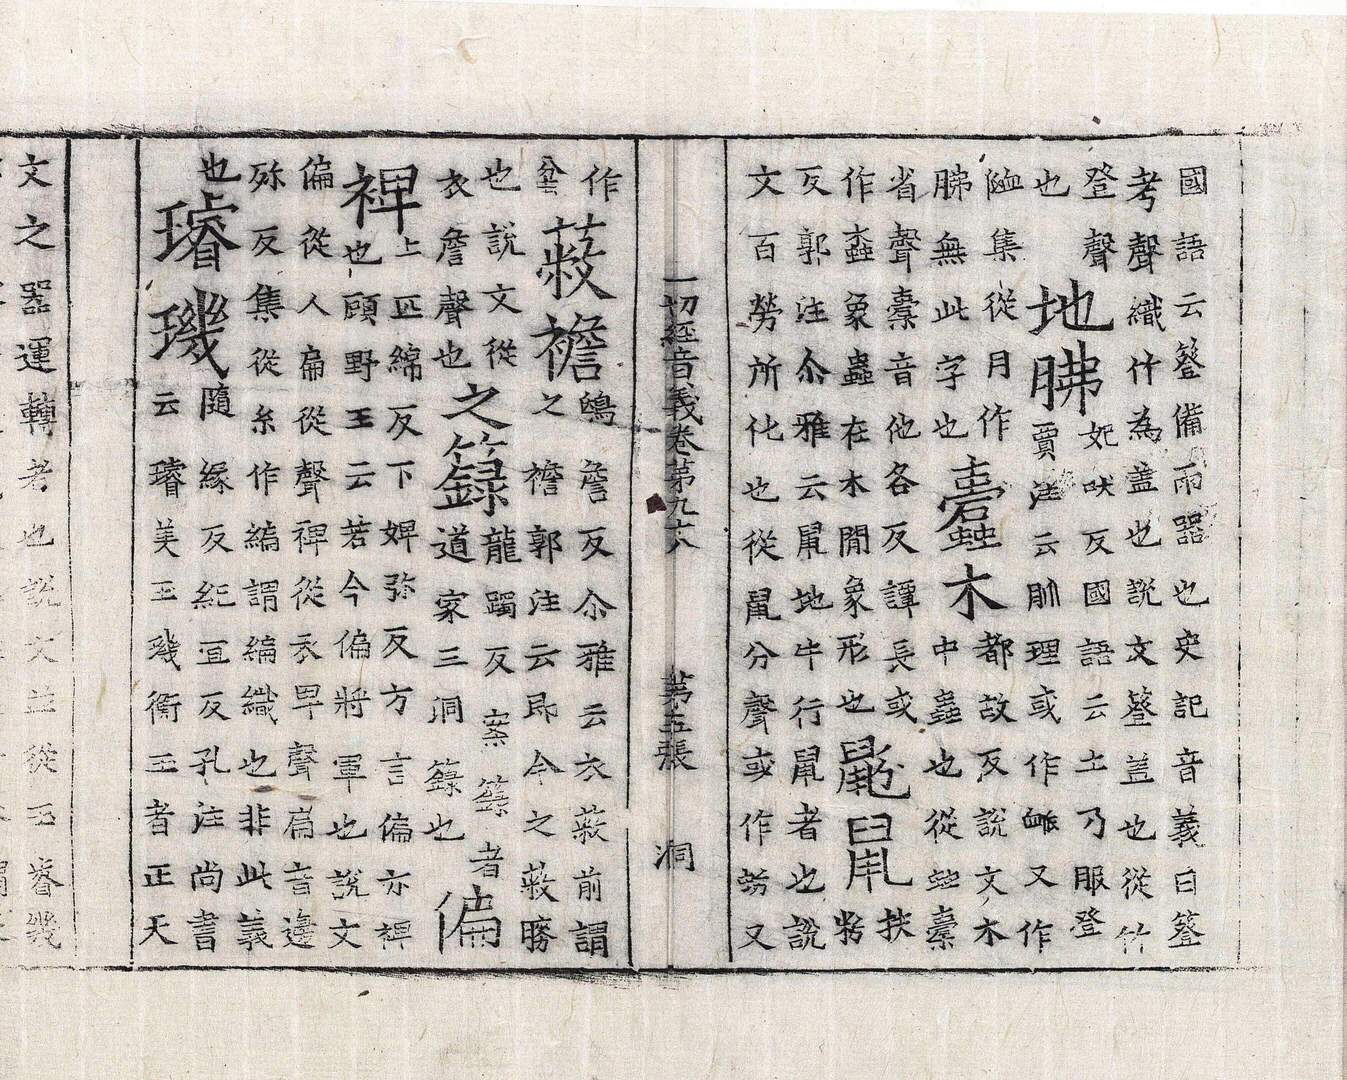 國語云簦備雨器也史記音義曰簦
考聲織什為蓋也說文簦蓋也從竹
登聲
也
地胇
妃吠反國語云土乃服登
賈注云脈理或作衇又作
集從月作
胇無此字也
蠹木
都故反說文木
中蟲也從䖵橐
省聲橐音他各反譚長或
作螙象蟲在木閒象形也
鼢鼠
扶
粉
反郭注尒雅云鼠地中行鼠者也說
文百勞所化也從鼠分聲或作蚡又
一切經音義卷第九六 第五張 洞
作
蔽襜
鴟詹反尒雅云衣蔽前謂
之襜郭注云即今之蔽膝
也說文從
衣詹聲也
之籙
龍躅反案籙者
道家三洞籙也
偏
裨
上匹綿反下婢弥反方言偏亦裨
也顧野王云若今偏將軍也說文
偏從人扁從聲裨從衣卑聲扁音邊
弥反集從糸作編謂編織也非此義
也
璿璣
隨緣反紀宜反孔注尚書
云璿美玉璣衡王者正天
文之器運轉者也說文並從玉睿幾